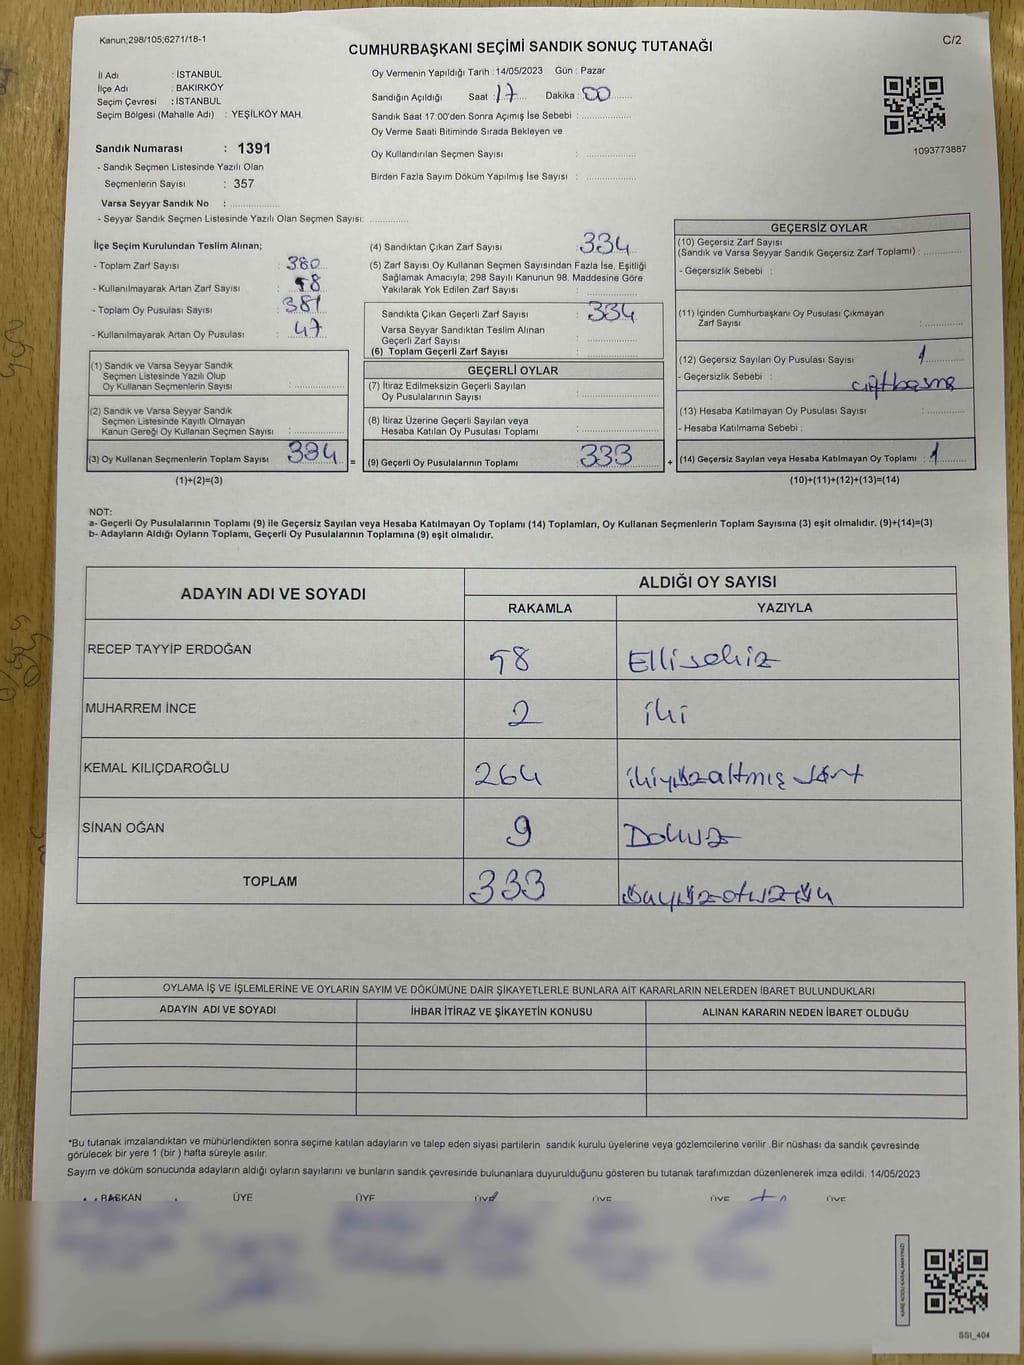 Kanun;298/105;6271/18-1
C/2
CUMHURBAŞKANI SEÇİMİ SANDIK SONUÇ TUTANAĞI
İl Adı : İSTANBUL
İlçe Adı : BAKIRKÖY
Seçim Çevresi : İSTANBUL
Seçim Bölgesi (Mahalle Adı) : YEŞİLKÖY MAH.
Oy Vermenin Yapıldığı Tarih : 14/05/2023 Gün : Pazar
Sandığın Açıldığı Saat : 17 Dakika : 00
Sandık Saat 17:00'den Sonra Açımış İse Sebebi :
Oy Verme Saati Bitiminde Sırada Bekleyen ve
Oy Kullandırılan Seçmen Sayısı :
Birden Fazla Sayım Döküm Yapılmış İse Sayısı :
1093773887
Sandık Numarası : 1391
- Sandık Seçmen Listesinde Yazılı Olan
Seçmenlerin Sayısı : 357
Varsa Seyyar Sandık No :
- Seyyar Sandık Seçmen Listesinde Yazılı Olan Seçmen Sayısı:
İlçe Seçim Kurulundan Teslim Alınan;
- Toplam Zarf Sayısı : 380
- Kullanılmayarak Artan Zarf Sayısı :
- Toplam Oy Pusulası Sayısı : 381
- Kullanılmayarak Artan Oy Pusulası : 47
(1) Sandık ve Varsa Seyyar Sandık
Seçmen Listesinde Yazılı Olup
Oy Kullanan Seçmenlerin Sayısı :
(2) Sandık ve Varsa Seyyar Sandık
Seçmen Listesinde Kayıtlı Olmayan
Kanun Gereği Oy Kullanan Seçmen Sayısı :
(3) Oy Kullanan Seçmenlerin Toplam Sayısı 334 =
(1)+(2)=(3)
(4) Sandıktan Çıkan Zarf Sayısı : 334
(5) Zarf Sayısı Oy Kullanan Seçmen Sayısından Fazla İse, Eşitliği
Sağlamak Amacıyla; 298 Sayılı Kanunun 98. Maddesine Göre
Yakılarak Yok Edilen Zarf Sayısı :
Sandıkta Çıkan Geçerli Zarf Sayısı : 334
Varsa Seyyar Sandıktan Teslim Alınan
Geçerli Zarf Sayısı :
(6) Toplam Geçerli Zarf Sayısı :
GEÇERLİ OYLAR
(7) İtiraz Edilmeksizin Geçerli Sayılan
Oy Pusulalarının Sayısı :
(8) İtiraz Üzerine Geçerli Sayılan veya
Hesaba Katılan Oy Pusulası Toplamı :
(9) Geçerli Oy Pusulalarının Toplamı : 333 +
GEÇERSİZ OYLAR
(10) Geçersiz Zarf Sayısı
(Sandık ve Varsa Seyyar Sandık Geçersiz Zarf Toplamı) :
- Geçersizlik Sebebi :
(11) İçinden Cumhurbaşkanı Oy Pusulası Çıkmayan
Zarf Sayısı :
(12) Geçersiz Sayılan Oy Pusulası Sayısı : 1
- Geçersizlik Sebebi : çiftbasma
(13) Hesaba Katılmayan Oy Pusulası Sayısı :
- Hesaba Katılmama Sebebi :
(14) Geçersiz Sayılan veya Hesaba Katılmayan Oy Toplamı : 1
(10)+(11)+(12)+(13)=(14)
NOT:
a- Geçerli Oy Pusulalarının Toplamı (9) ile Geçersiz Sayılan veya Hesaba Katılmayan Oy Toplamı (14) Toplamları, Oy Kullanan Seçmenlerin Toplam Sayısına (3) eşit olmalıdır. (9)+(14)=(3)
b- Adayların Aldığı Oyların Toplamı, Geçerli Oy Pusulalarının Toplamına (9) eşit olmalıdır.
ADAYIN ADI VE SOYADI
ALDIĞI OY SAYISI
RAKAMLA YAZIYLA
RECEP TAYYİP ERDOĞAN 58 Ellisekiz
MUHARREM İNCE 2 iki
KEMAL KILIÇDAROĞLU 264 ikiyüzaltmış dört
SİNAN OĞAN 9 Dokuz
TOPLAM 333 üçyüzotuzüç
OYLAMA İŞ VE İŞLEMLERİNE VE OYLARIN SAYIM VE DÖKÜMÜNE DAİR ŞİKAYETLERLE BUNLARA AİT KARARLARIN NELERDEN İBARET BULUNDUKLARI
ADAYIN ADI VE SOYADI İHBAR İTİRAZ VE ŞİKAYETİN KONUSU ALINAN KARARIN NEDEN İBARET OLDUĞU
*Bu tutanak imzalandıktan ve mühürlendikten sonra seçime katılan adayların ve talep eden siyasi partilerin sandık kurulu üyelerine veya gözlemcilerine verilir .Bir nüshası da sandık çevresinde
görülecek bir yere 1 (bir ) hafta süreyle asılır.
Sayım ve döküm sonucunda adayların aldığı oyların sayılarını ve bunların sandık çevresinde bulunanlara duyurulduğunu gösteren bu tutanak tarafımızdan düzenlenerek imza edildi. 14/05/2023
BAŞKAN ÜYE ÜYE ÜYE ÜYE ÜYE ÜYE
KARE KODU KARALAMAYINIZ!
SSI_404